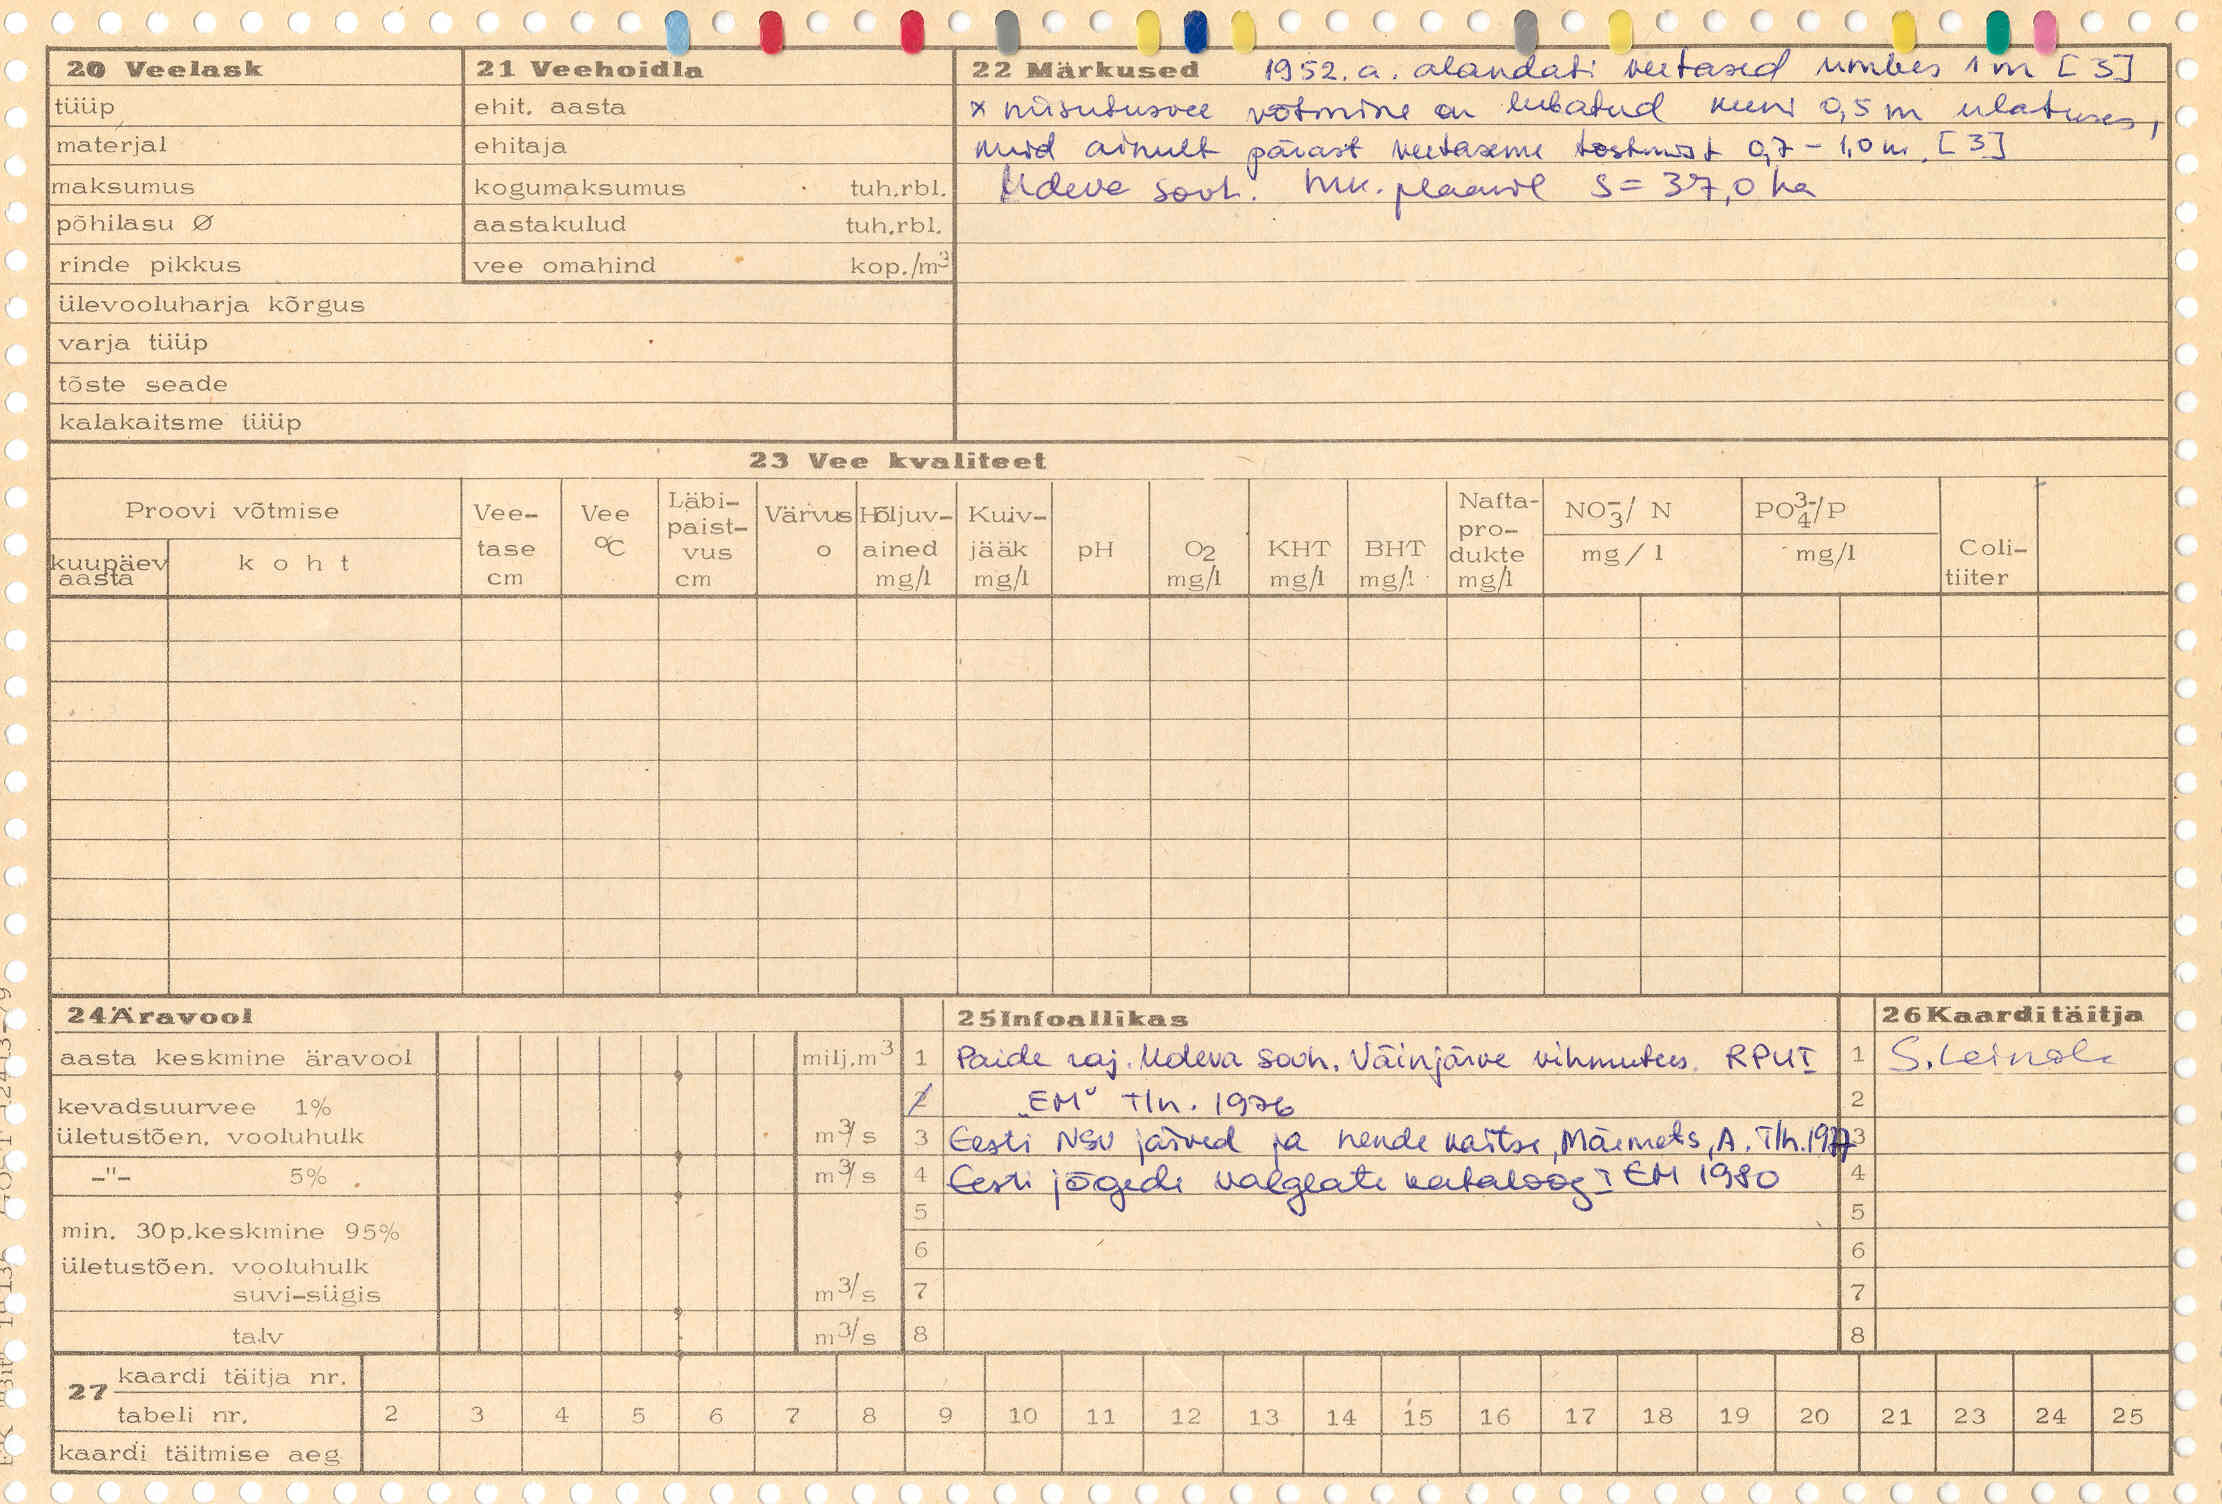 20 Veelask
tüüp
materjal
maksumus
põhilasu Ø
rinde pikkus
ülevooluharja kõrgus
varja tüüp
tõste seade
kalakaitsme tüüp
21 Veehoidla
ehit. aasta
ehitaja
kogumaksumus tuh.rbl.
aastakulud tuh.rbl.
vee omahind kop./m3
22 Märkused 1952. a. alandati veetased umbes 1 m [3]
x niisutusvee võtmine on lubatud kuni 0,5 m ulatuses,
kuid ainult pärast veetaseme tõstmist 0,7 - 1,0 m. [3]
Udeva sovh. MK. plaanil S = 37,0 ha
23 Vee kvaliteet
Proovi võtmise
kuupäev aasta
koht
Vee-tase cm
Vee °C
Läbi-paist-vus cm
Värvus o
Hõljuv-ained mg/l
Kuiv-jääk mg/l
pH
O2 mg/l
KHT mg/l
BHT mg/l
Nafta-pro-dukte mg/l
NO3-/ N mg/l
PO43-/P mg/l
Coli-tiiter
24 Äravool
aasta keskmine äravool milj.m3
kevadsuurvee 1%
ületustõen. vooluhulk m3/s
-"- 5% m3/s
min. 30p.keskmine 95%
ületustõen. vooluhulk
suvi-sügis m3/s
talv m3/s
25 Infoallikas
1 Paide raj. Udeva sovh. Väinjärve vihmutus. RPUI
2 „EM" Tln. 1976
3 Eesti NSV järved ja nende kaitse, Mäemets, A. Tln. 1977
4 Eesti jõgede valgeate kataloog I EM 1980
5
6
7
8
26 Kaarditäitja
1 S. Leinola
2
3
4
5
6
7
8
27 kaardi täitja nr.
tabeli nr. 2 3 4 5 6 7 8 9 10 11 12 13 14 15 16 17 18 19 20 21 23 24 25
kaardi täitmise aeg